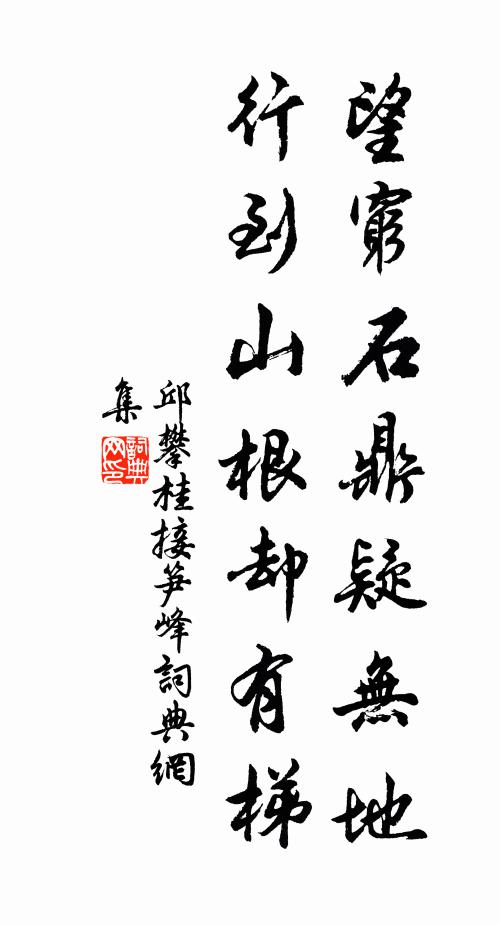 望窮石鼎疑無地
行到山根却有梯
邱攀桂接笋峰詞典網
集
詞典网印